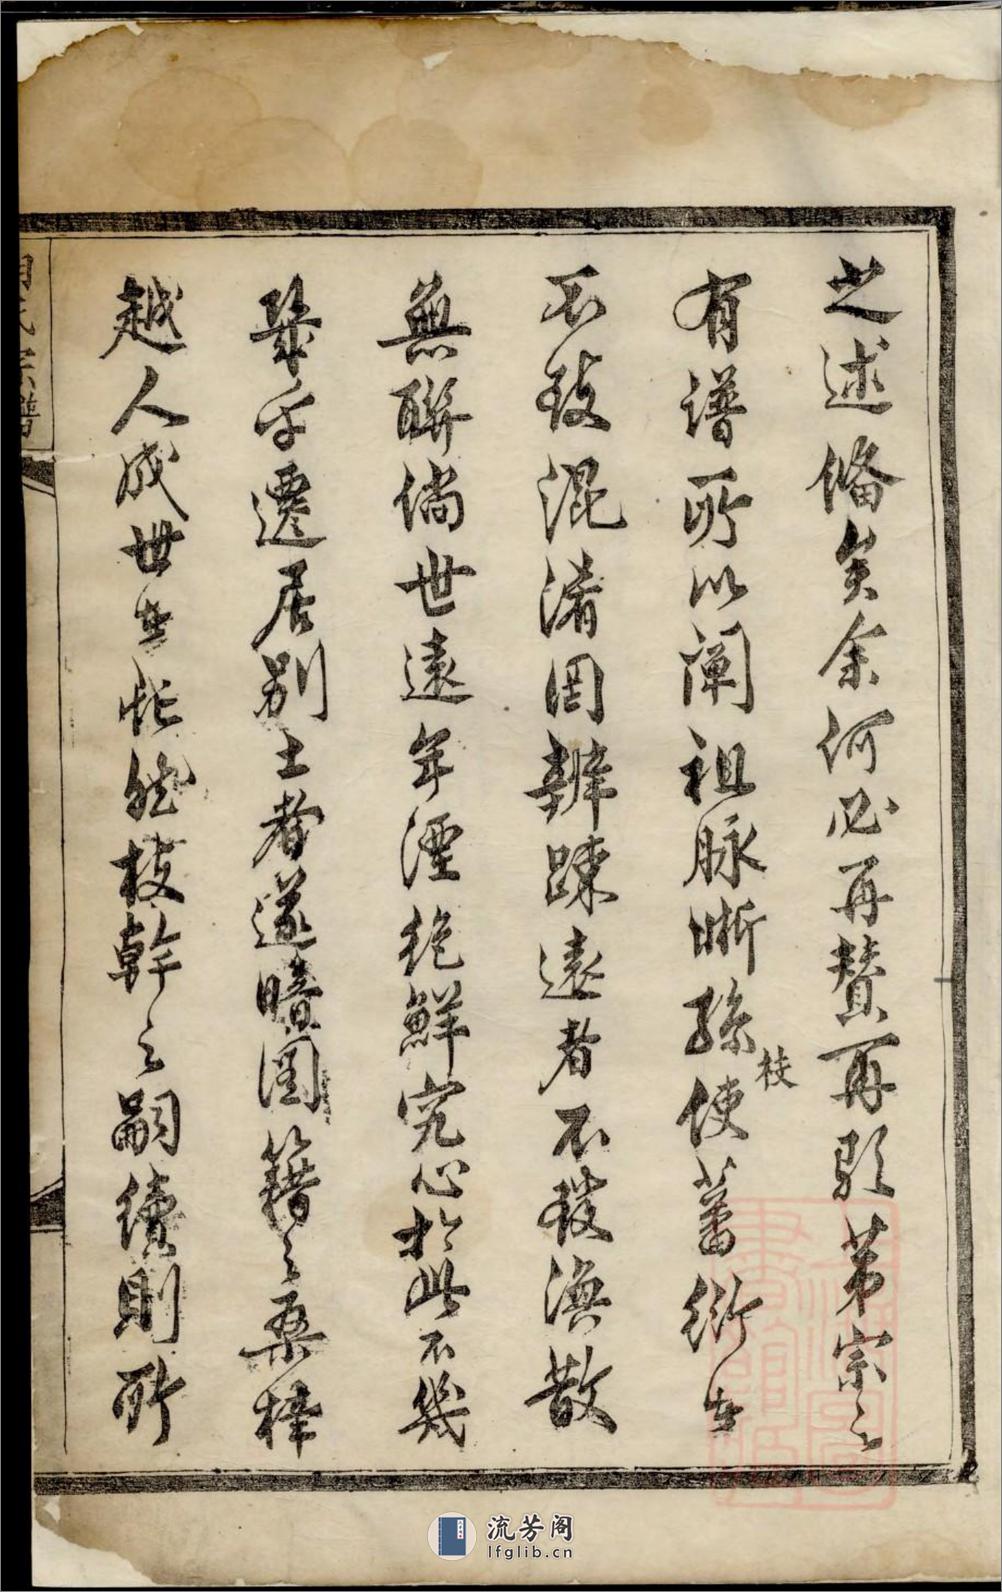 之述備矣余何必再贅再股苐宗之
有譜所以闡祖脉晰孫枝使蕃衍者
不致混淆罔辨踈遠者不致渙散
無聯倘世遠年湮絶鮮究心於此不幾
舉乎遷居别土者遂暗國籍之桑梓
越人成世者忙然枝幹之嗣續則所
氏宗譜
流芳阁
lfglib.cn